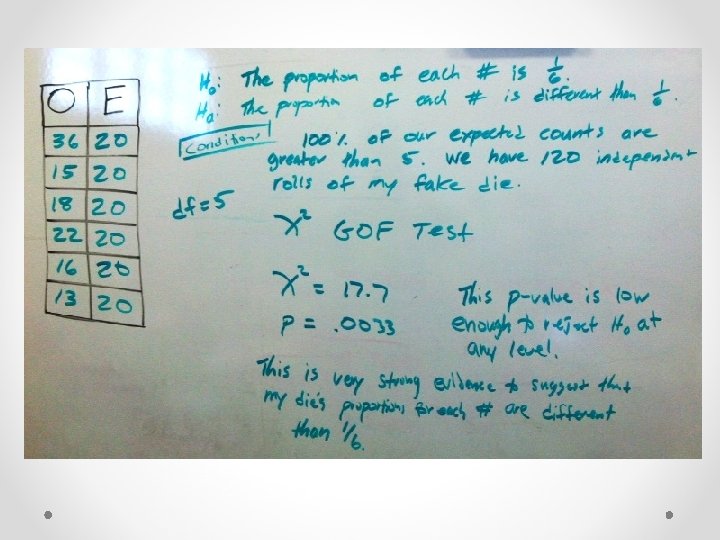 O E
36 20
15 20
18 20
22 20
16 20
13 20
H₀: The proportion of each # is 1/6.
Ha: The proportion of each # is different than 1/6.
Conditions 100% of our expected counts are
greater than 5. We have 120 independent
rolls of my fake die.
df=5
X² GOF Test
X² = 17.7
P = .0033
This p-value is low
enough to reject H₀ at
any level.
This is very strong evidence to suggest that
my die's proportions for each # are different
than 1/6.